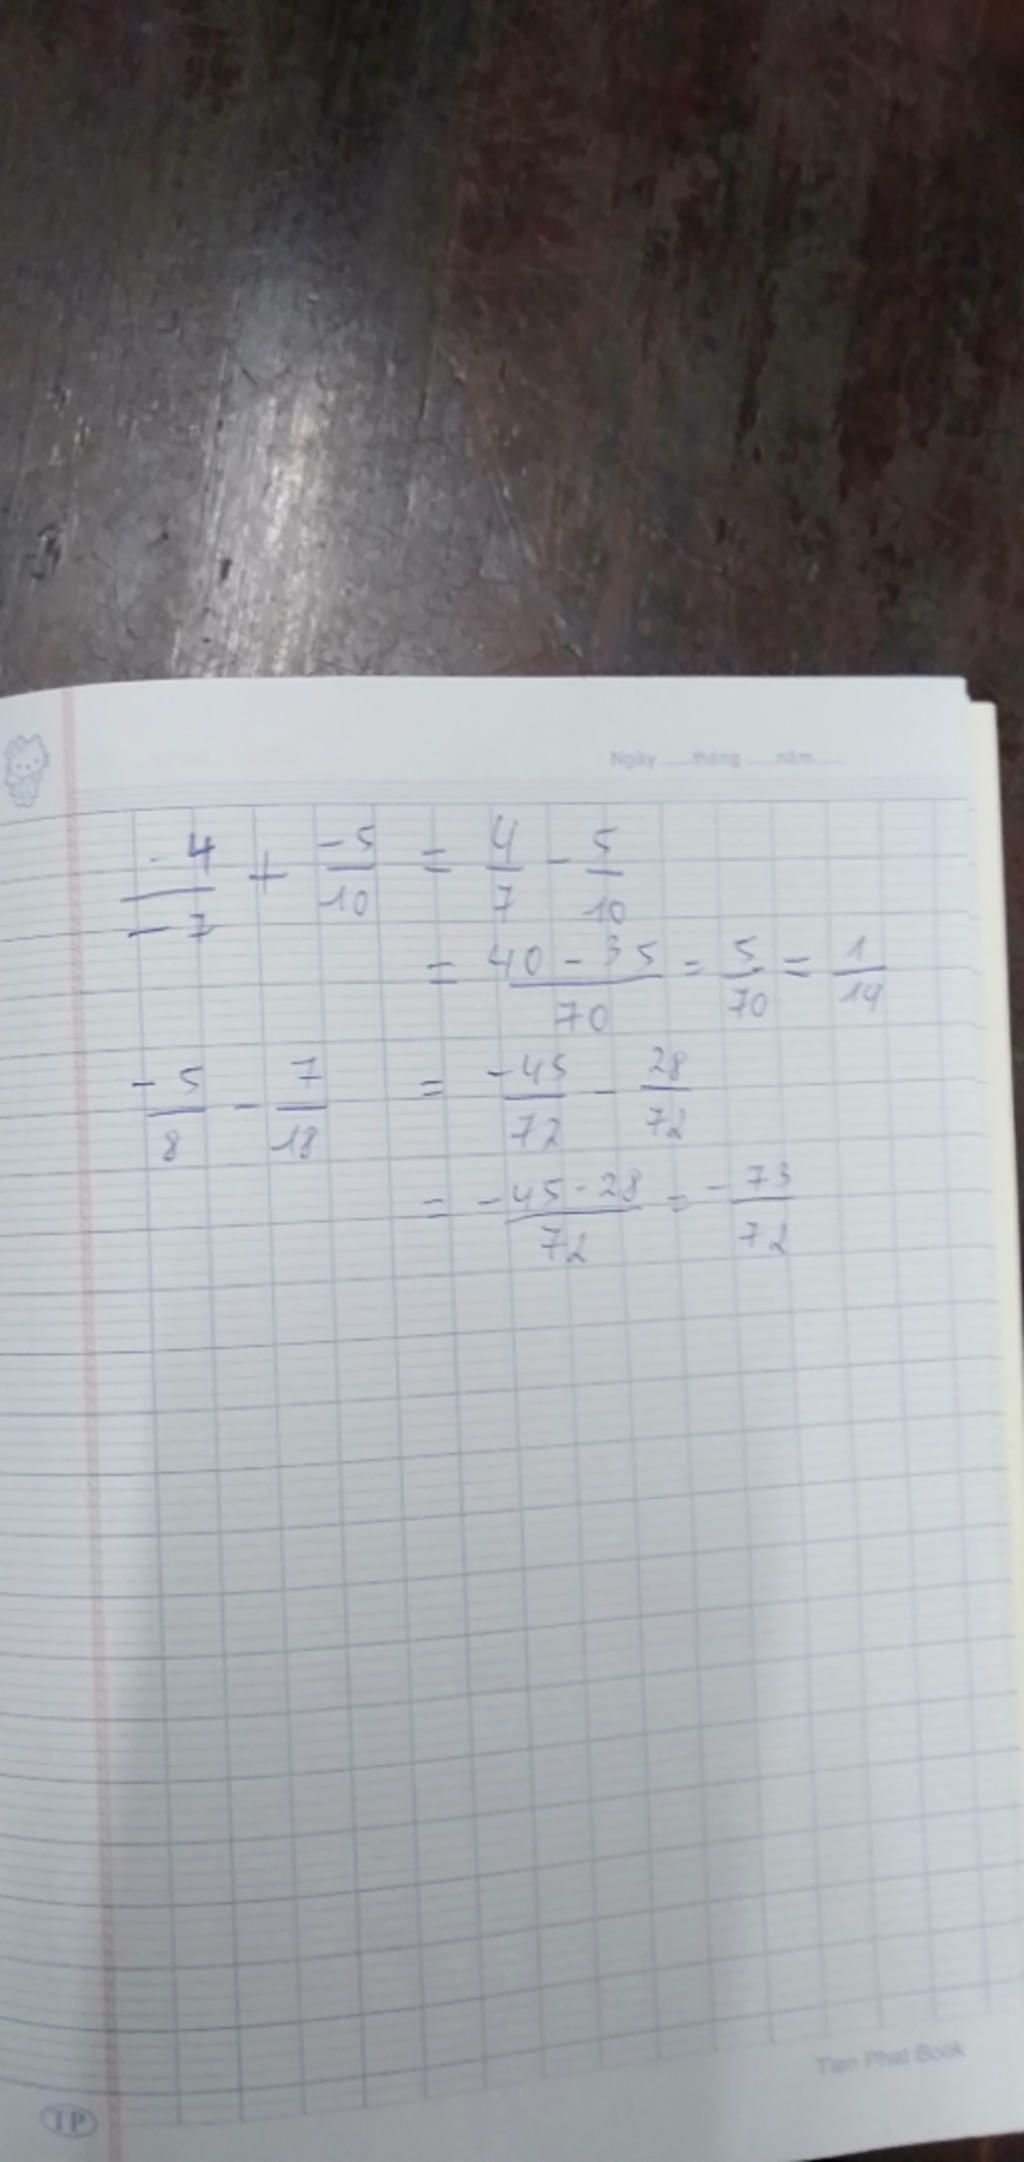 Ngày ..... tháng ..... năm .....
-4/-7 + -5/10 = 4/7 - 5/10
= 40 - 35/70 = 5/70 = 1/14
-5/8 - 7/18 = -45/72 - 28/72
= -45 - 28/72 = -73/72
Tien Phat Book
TP